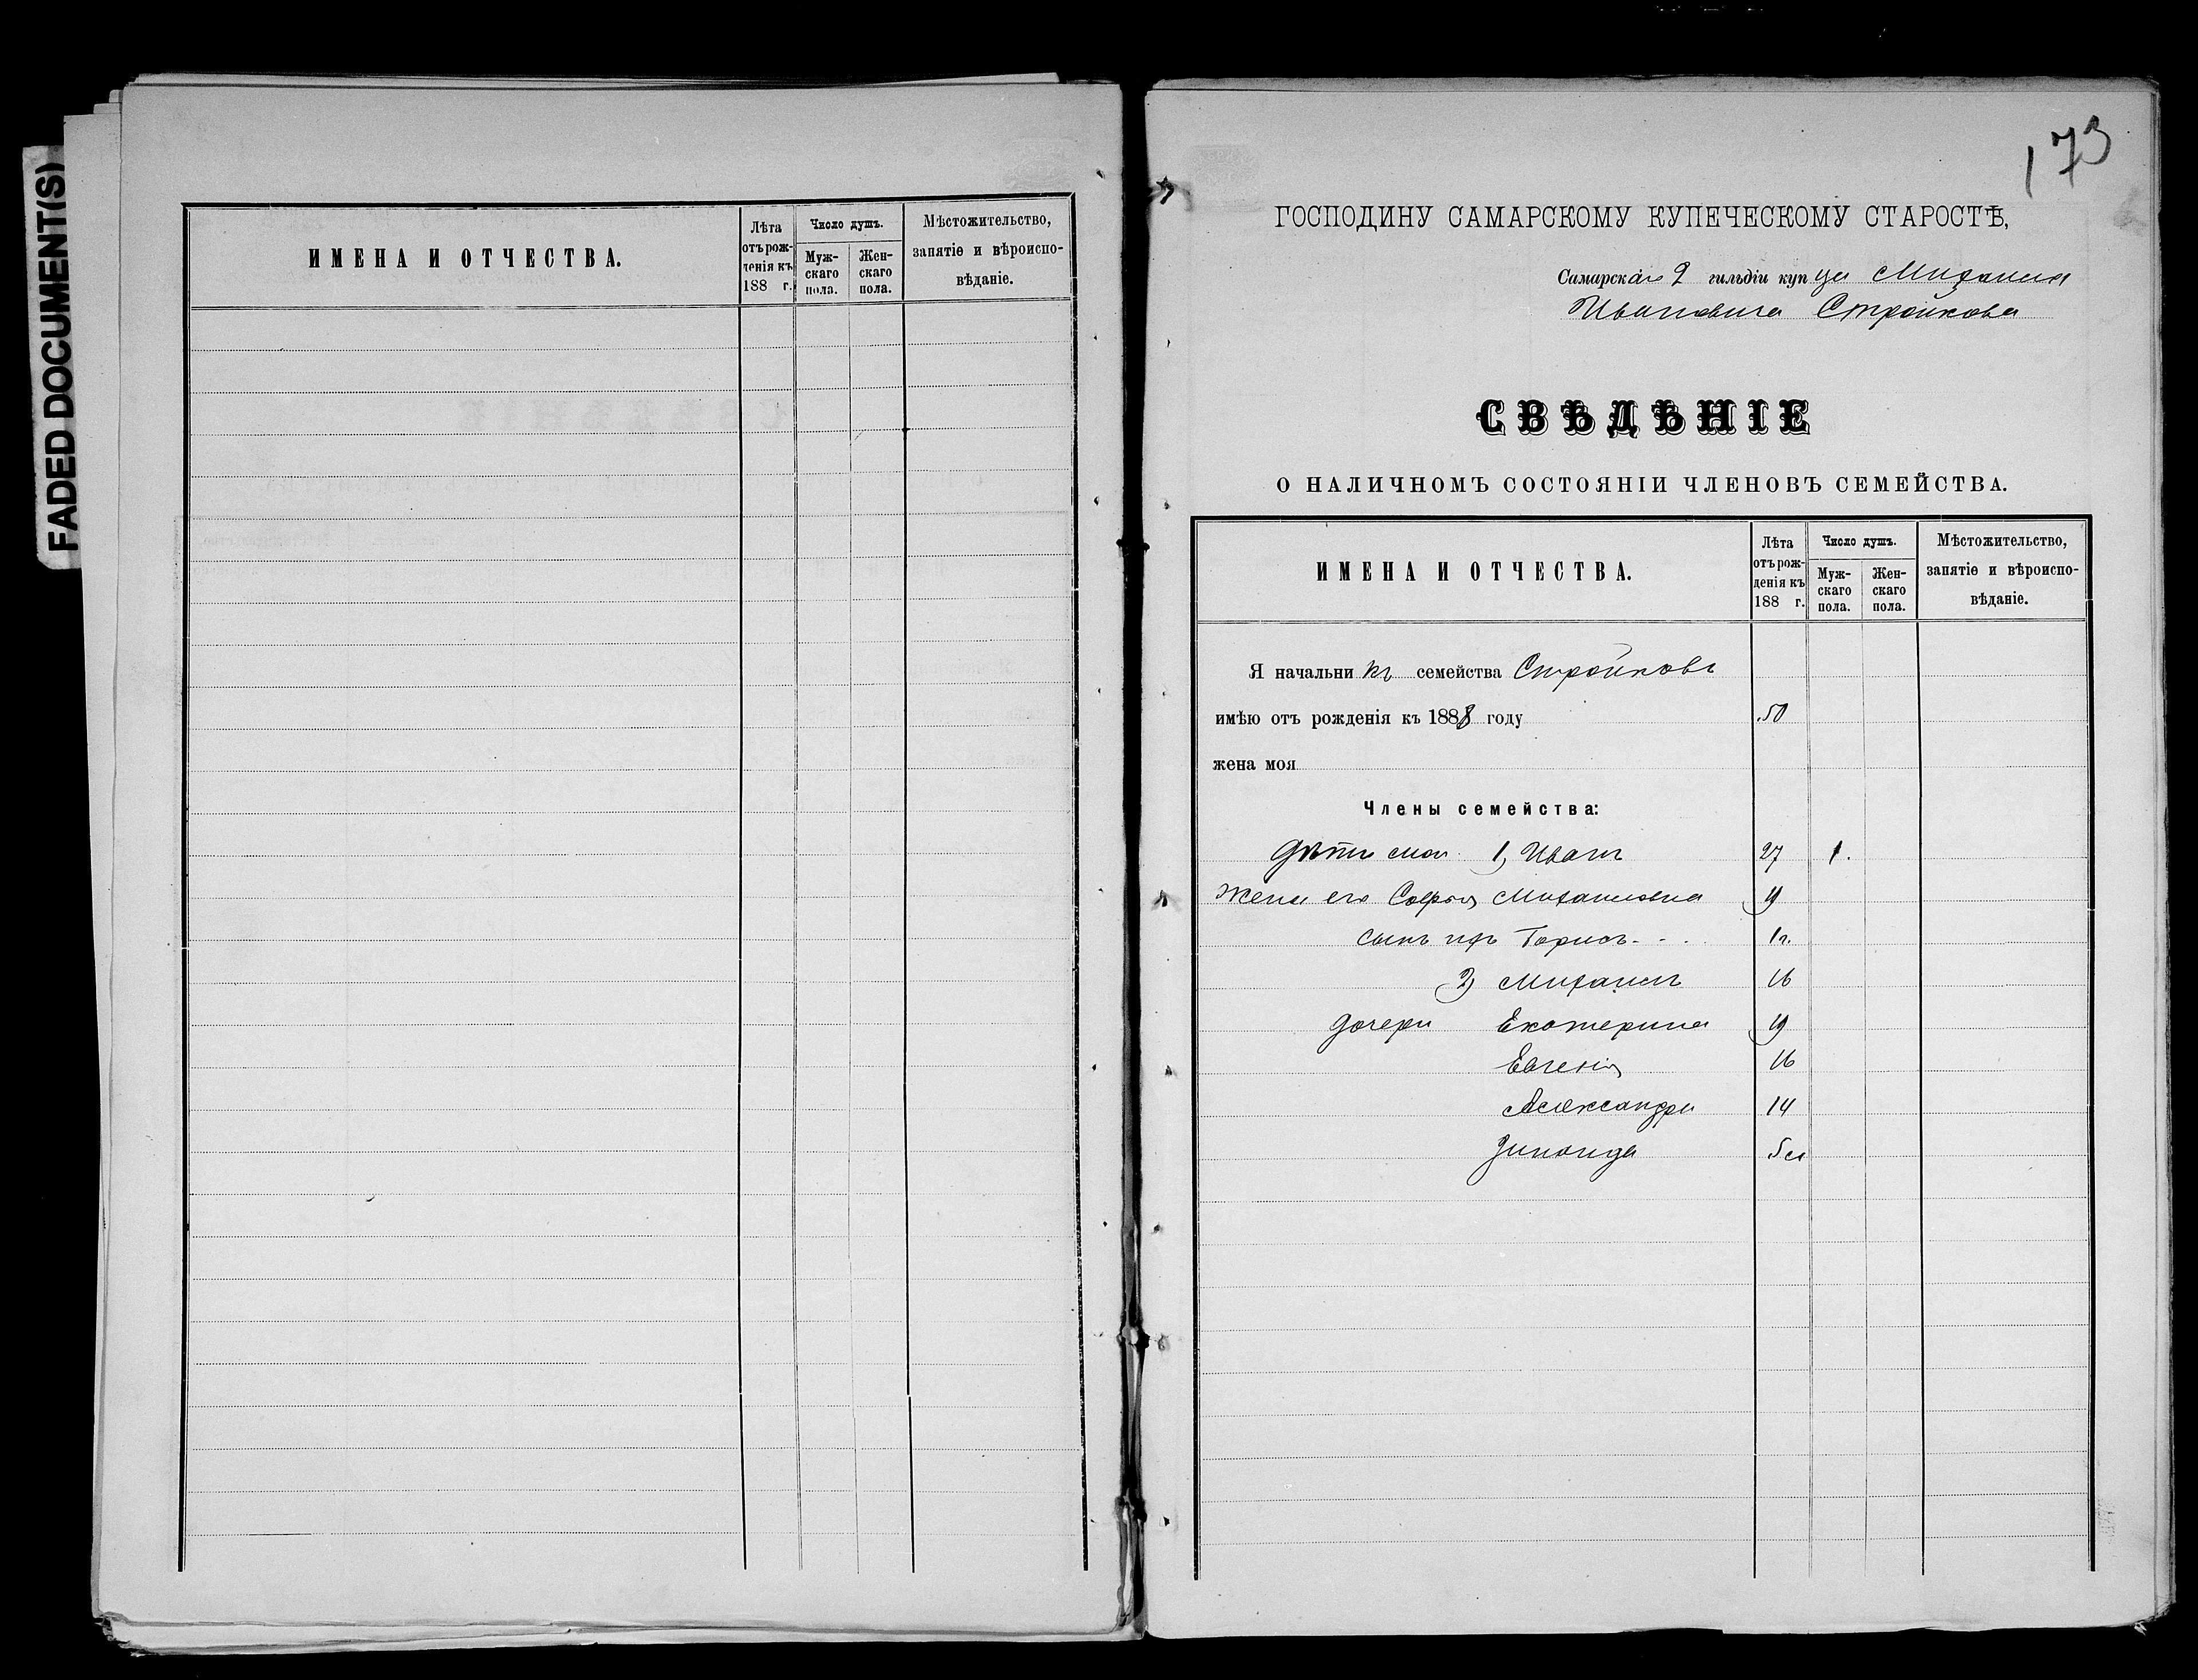 FADED DOCUMENT(S)
ИМЕНА И ОТЧЕСТВА.
Лѣта отъ рожденія къ 188 г.
Число душъ.
Мужскаго пола.
Женскаго пола.
Мѣстожительство, занятіе и вѣроисповѣданіе.
173
ГОСПОДИНУ САМАРСКОМУ КУПЕЧЕСКОМУ СТАРОСТѢ,
Самарскаго 2 гильдіи купца Михаила
Ивановича Стройкова
СВѢДѢНІЕ
О НАЛИЧНОМЪ СОСТОЯНІИ ЧЛЕНОВЪ СЕМЕЙСТВА.
ИМЕНА И ОТЧЕСТВА.
Лѣта отъ рожденія къ 188 г.
Число душъ.
Мужскаго пола.
Женскаго пола.
Мѣстожительство, занятіе и вѣроисповѣданіе.
Я начальникъ семейства Стройковъ
имѣю отъ рожденія къ 1888 году 50
жена моя
Члены семейства:
Дѣти мои 1, Иванъ 27 1.
Жена его Софья Михаиловна 19
сынъ ихъ 1 г.
2) Михаилъ 16
дочери Екатерина 19
Евгенія 16
Александра 14
Зинаида